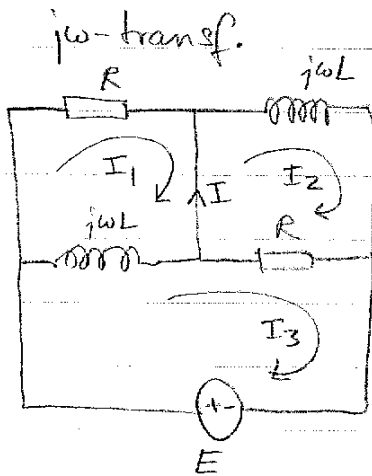 jω-transf.
R
jωL
I₁
I
I₂
jωL
R
I₃
+-
E